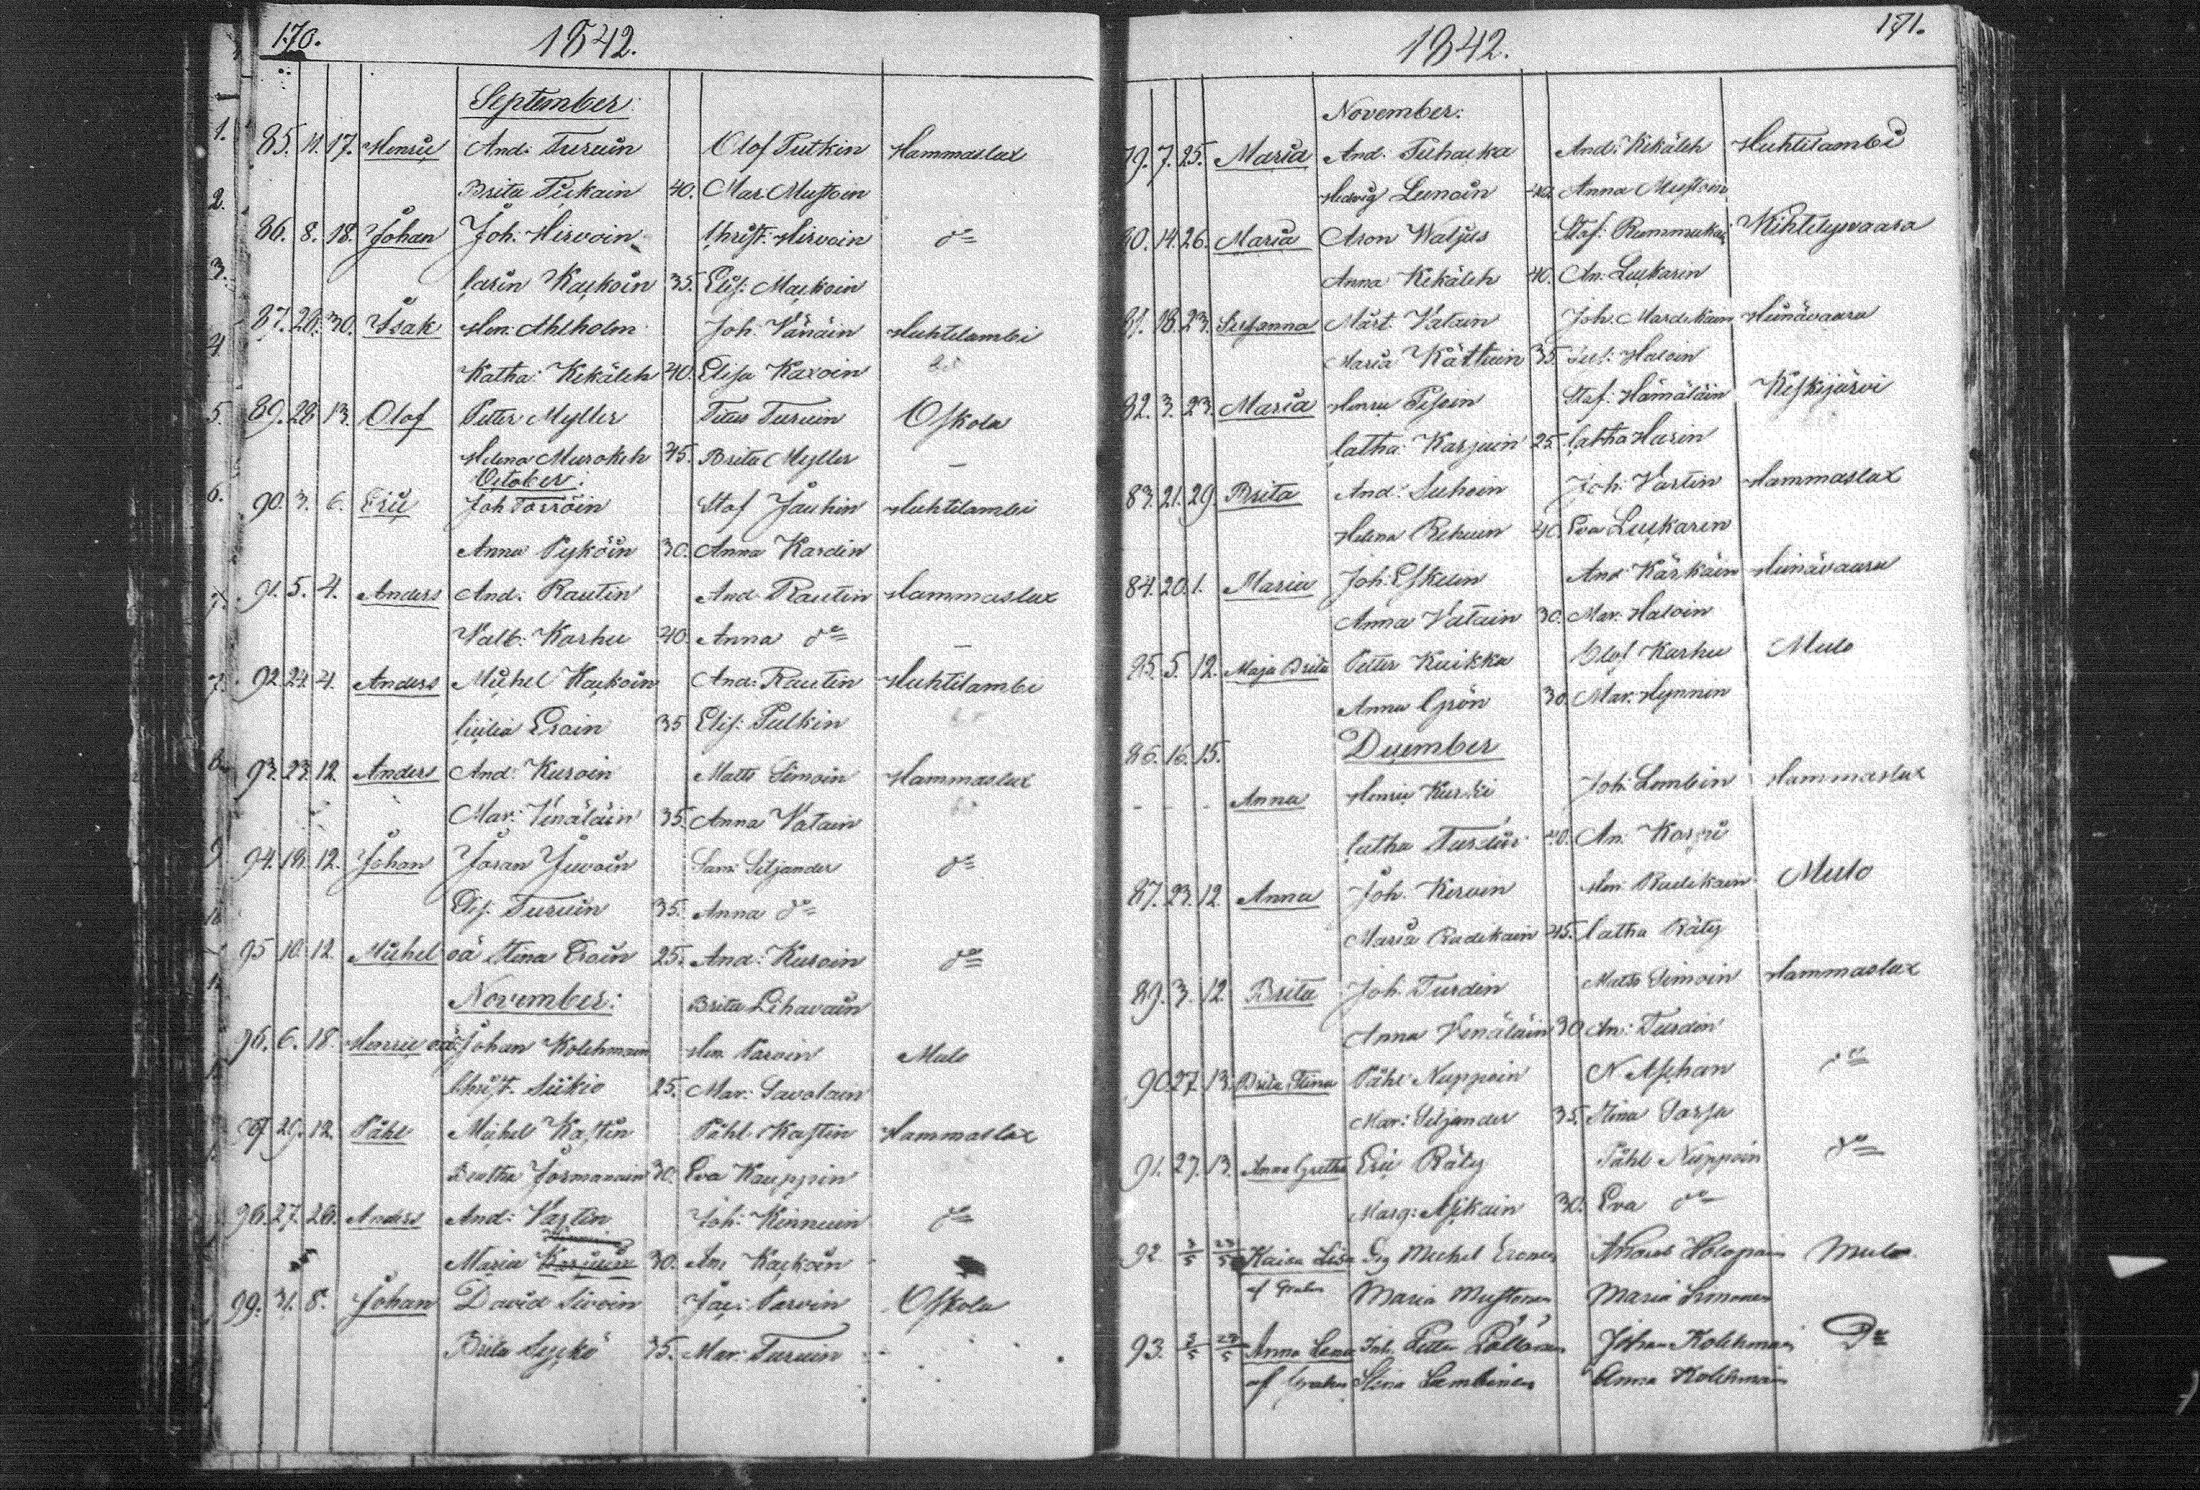 170.
1842.
September:
85. 11. 17. Henric And. Turuin Olof Putkin Hammaslax
Brita Tiikain 40. Mar Mustoin
86. 8. 18. Johan Joh. Hirvoin Christ. Hirvoin do
Carin Kackoin 35. Elis: Mackoin
87. 28. 30. Isak Hen: Ahlholm Joh: Vänäin Huhtilambi
Katha: Kekäleh 40. Elisa Kaxoin
89. 28 13. Olof Petter Myller Titus Turuin Oskola
Helena Murokeh 45. Brita Myller
October:
90. 3. 6. Eric Joh Törröin Staf Jauhin Huhtilambi
Anna Pyköin 30. Anna Kardin
91. 5. 4. Anders And. Rautin And. Rautin Hammaslax
Valb: Karhu 40. Anna do
92. 24. 4. Anders Michel Kackoin And: Rautin Huhtilambi
Cicilia Eroin 35 Elis: Pulkin
93. 23. 12. Anders And: Kuroin Matts Simoin Hammaslax
Mar: Venäläin 35. Anna Vatain
94. 18. 12. Johan Joran Juvoin Sam: Siljander do
Elis: Turuin 35. Anna do
95 10. 12. Michel oä Stina Eroin 25. And: Kuroin do
November: Brita Lihavain
96. 6. 18. Henric oä Johan Kolehmain Hen. Parvin Mulo
Christ. Siikio 25. Mar: Savolain
97. 29. 12. Påhl Michel Kastin Påhl Kastin Hammaslax
Beatha Jormanain 30. Eva Kauppin
98. 27. 26. Anders And: Vartin Joh: Kinnuin do
Maria 30. An: Kackoin
99. 31. 8. Johan David Sivoin Jac: Parvin Oskola
Brita Syckö 35. Mar: Turuin
171.
1842.
November:
79. 7. 25. Maria And. Tuhacka And: Kekäleh Huhtilambi
Hedvig Leinoin 40. Anna Mustoin
80. 14. 26. Maria Aron Waljus Staf: Rummukai Kihtelysvaara
Anna Kekäleh 40. An: Luckarin
81. 18. 23. Susanna Mårt. Vatain Joh. Mardikain Hiinävaara
Maria Kättuin 35 Sus: Haloin
82. 3. 23. Maria Henric Pesoin Staf: Hämäläin Keskijärvi
Catha: Karjuin 25. Catha Harin
83. 21. 29. Brita And: Suhoin Joh: Vartin Hammaslax
Helena Rehuin 40. Eva Luckaren
84. 20. 1. Maria Joh: Eskelin And Kärkäin Hiinävaara
Anna Vatain 30. Mar: Haloin
85. 5. 12. Maja Brita Petter Kuikka Olof Karhu Mulo
Anna Grön 30. Mar: Hynnin
86. 16. 15. December
Anna Henric Kurki Joh: Lembin Hammaslax
Catha 40. An: Korpi
87. 23. 12. Anna Joh. Kervin Hen: Radikain Mulo
Maria Radikain 45. Catha Räty
89. 3. 12. Brita Joh: Turdin Matts Simoin Hammaslax
Anna Venäläin 30. An: Turdin
90. 27. 13. Brita Stina Påhl Nuppoin N Aschan do
Mar: Siljander 35. Stina Sarja
91. 27. 13. Anna Gretha Eric Räty Påhl Nuppoin do
Marg: Asikain 30. Eva do
92. 3/5 23/5 Kaisa Lisa Gg Michel Eronen Holopain Mulo
Maria Mustonen Maria Simonen
93. 3/5 23/5 Anna Lena Inh. Petter Pöllönen Johan Kolehmain Do
Stina Lembinen Anna Kolehmain